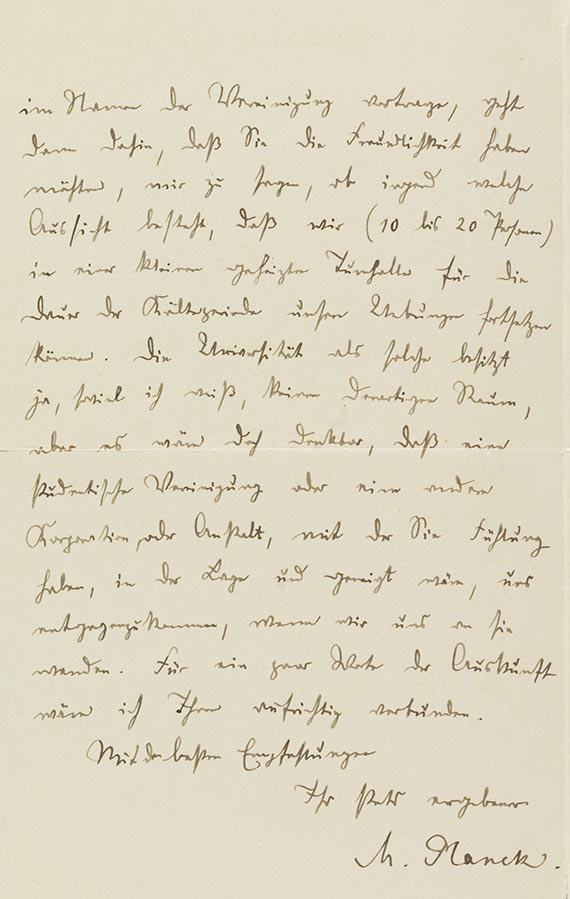 im Namen der Vereinigung vortrage, geht
dann dahin, daß Sie die Freundlichkeit haben
möchten, mir zu sagen, ob irgend welche
Aussicht besteht, daß wir (10 bis 20 Personen)
in einer kleinen geheizten Turnhalle für die
Dauer der Kälteperiode unsere Uebungen fortsetzen
können. Die Universität als solche besitzt
ja, soviel ich weiß, keinen derartigen Raum,
aber es wäre doch denkbar, daß eine
studentische Vereinigung oder eine andere
Korporation oder Anstalt, mit der Sie Fühlung
haben, in der Lage und geneigt wäre, uns
entgegenzukommen, wenn wir uns an sie
wenden. Für ein paar Worte der Auskunft
wäre ich Ihnen aufrichtig verbunden.
Mit den besten Empfehlungen
Ihr stets ergebener
M. Planck.